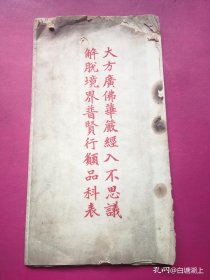 大方廣佛華嚴經入不思議
解脫境界普賢行願品科表
孔网@白塘湖上